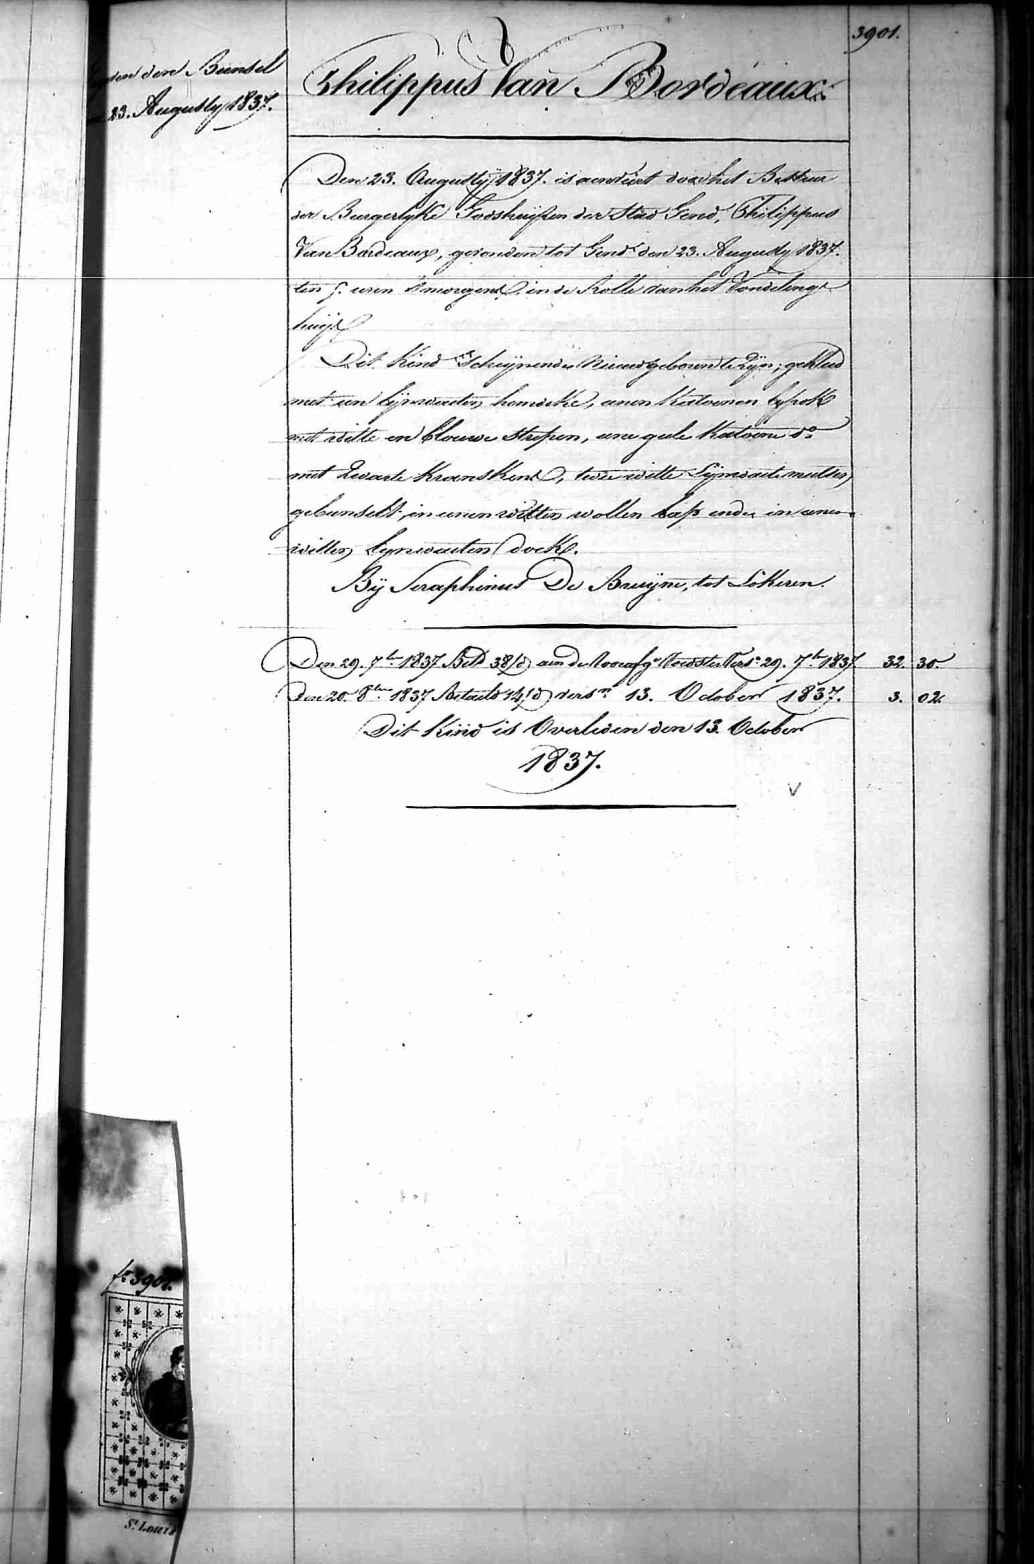 3901.
den Bundel
23. Augusty 1837.
Philippus Van Bordeaux.
Den 23. Augusty 1837. is aenveert door het Bestuer
der Burgerlyke Godshuijsen der Stad Gend, Philippus
Van Bordeaux, gevonden tot Gend den 23. Augusty 1837.
ten 5. uren 's morgens, in de Rolle van het Vondelings
huijs.
Dit Kind scheijnende Nieuwgeboren te zijn; gekleed
met een lijnwaeten hemdeke, eenen Katoenen
met witte en blouwe strepen, eene gele Katoene do
met zwarte Kranskens, twee witte Lijnwaete mutsen,
gebunselt in eenen witten wollen lap ende in eenen
witten lynwaeten doek.
Bij Seraphinus De Bruijne, tot Lokeren.
Den 29. 7ber 1837 38 aen de Voedster 29. 7br 1837. 32. 30.
Den 20. 8ber 1837 Betaelt 14 13. October 1837. 3. 02
Dit Kind is Overleden den 13. October
1837.
V
fo 3901.
St. Louis